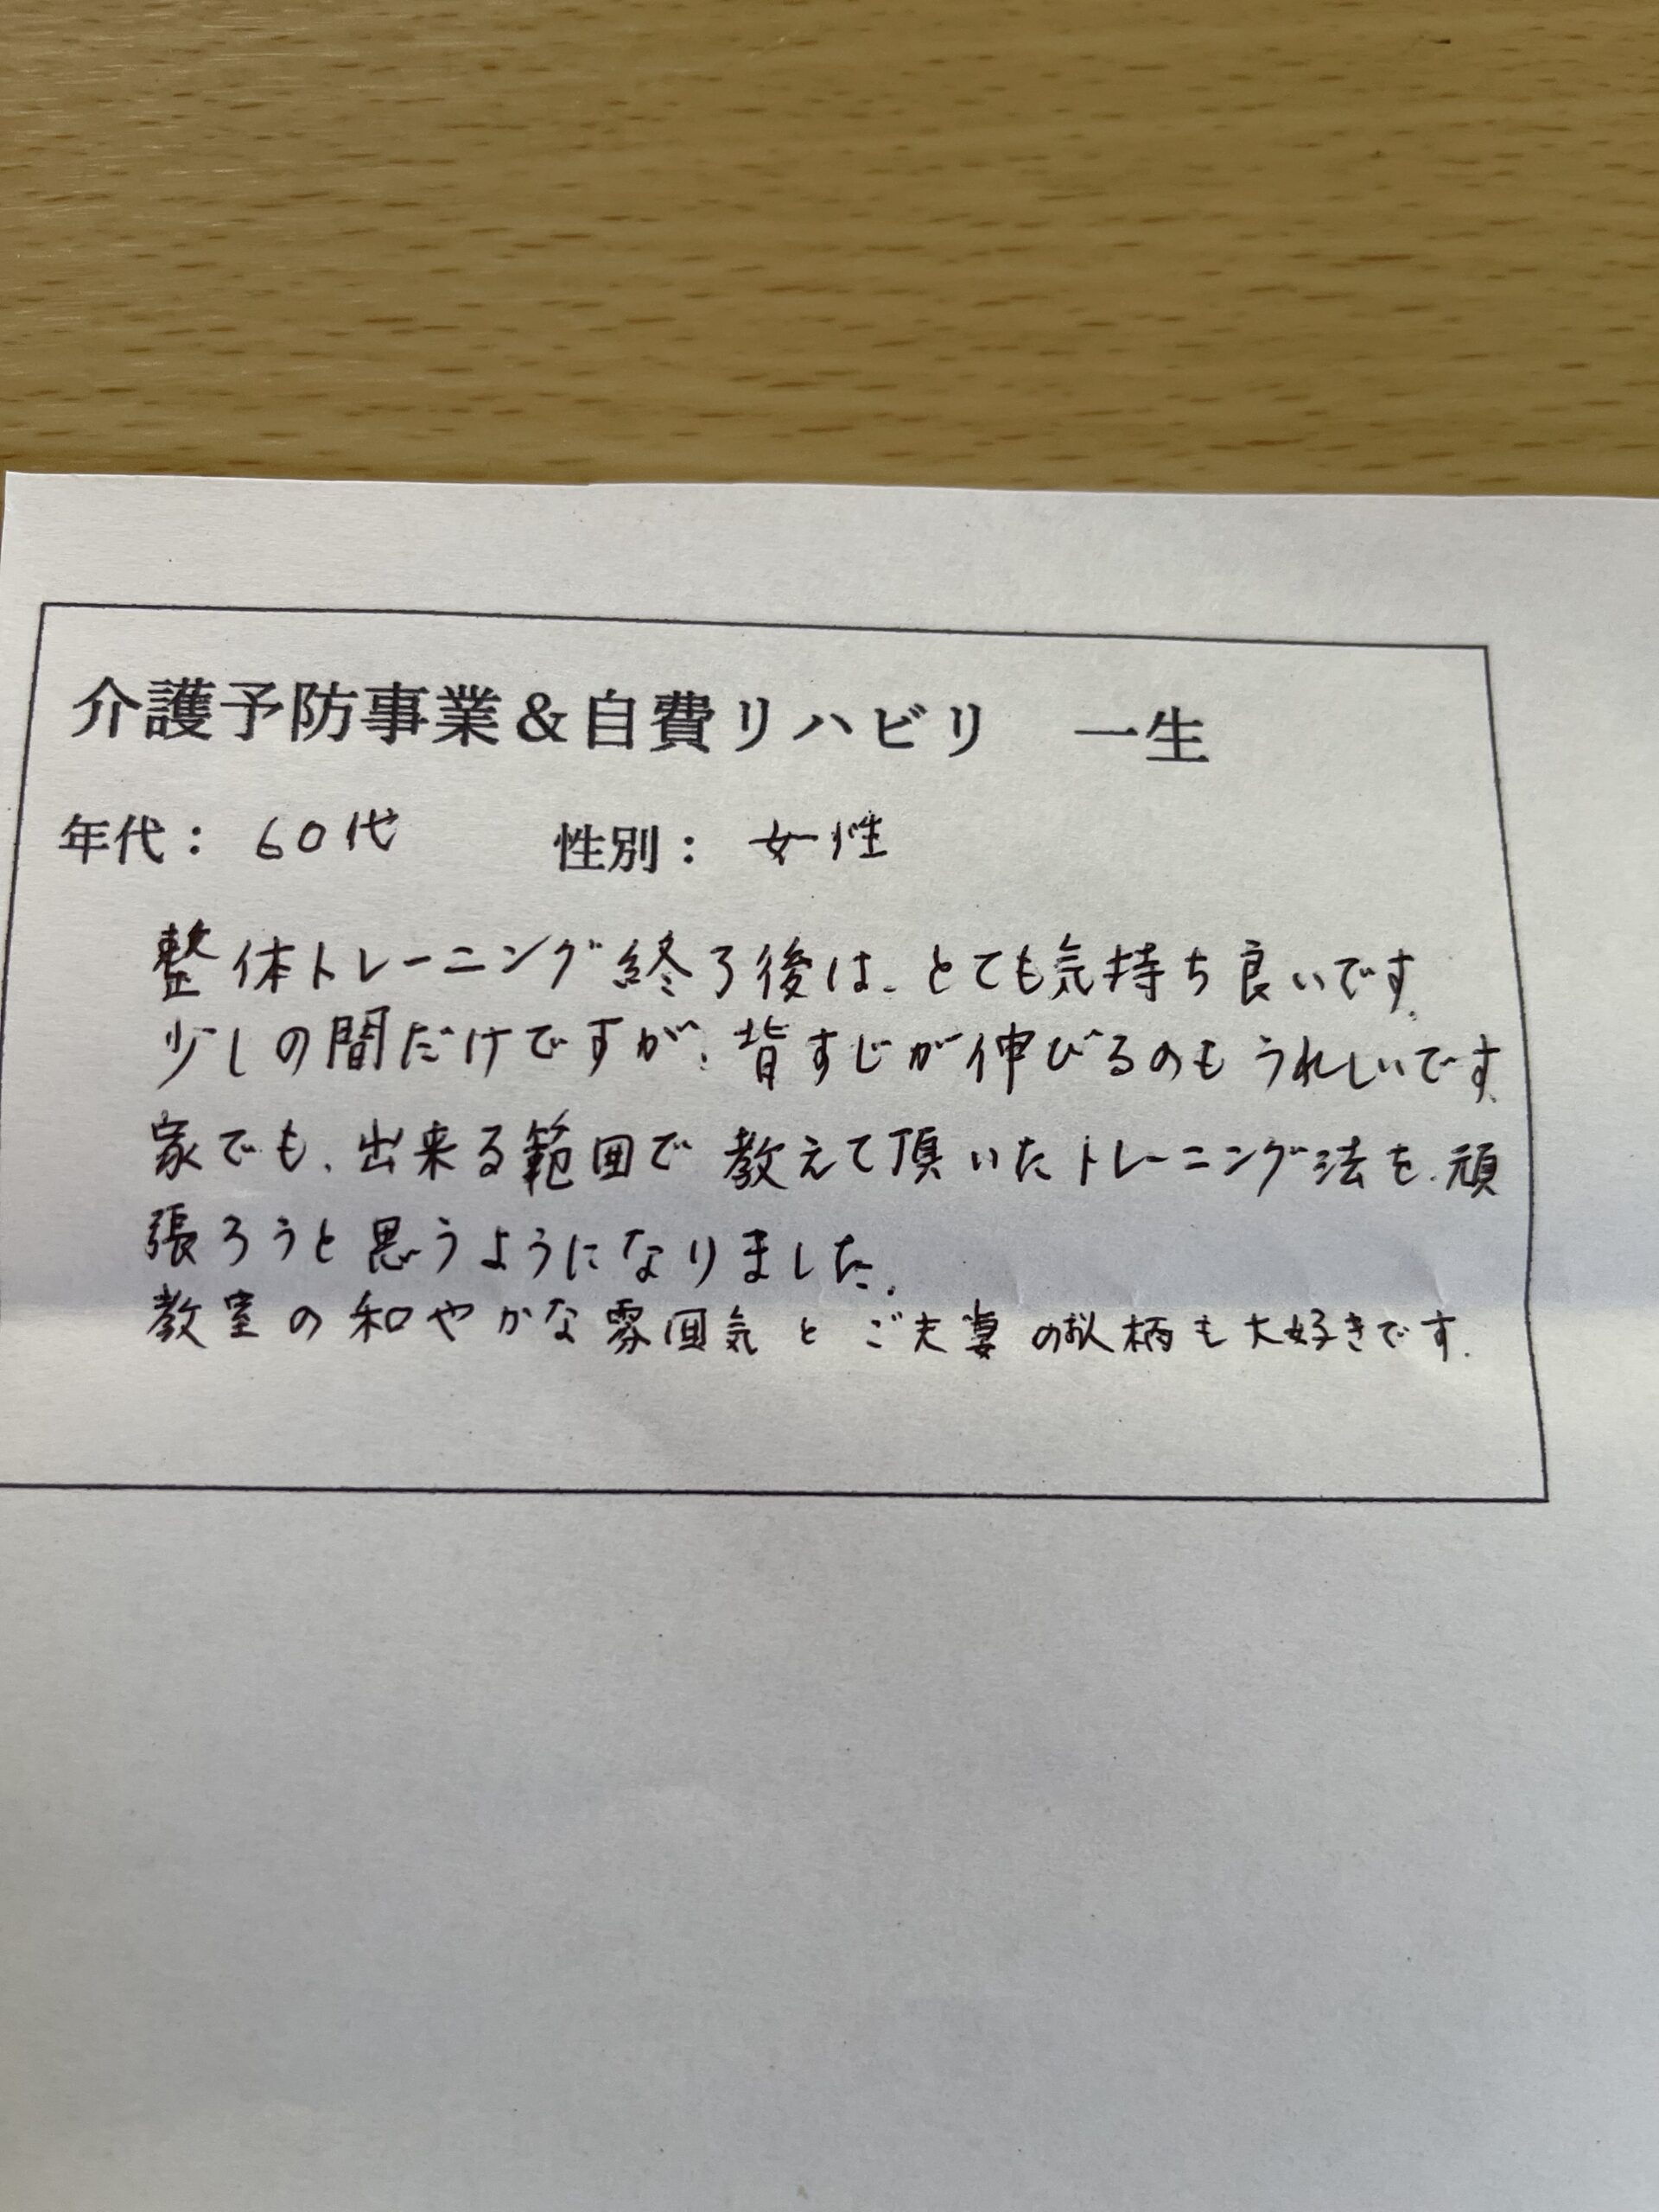 介護予防事業＆自費リハビリ　一生
年代： 60代　性別： 女性
整体トレーニング終了後は、とても気持ち良いです。
少しの間だけですが、背すじが伸びるのもうれしいです。
家でも、出来る範囲で教えて頂いたトレーニング法を、頑
張ろうと思うようになりました。
教室の和やかな雰囲気とご夫妻のお人柄も大好きです。